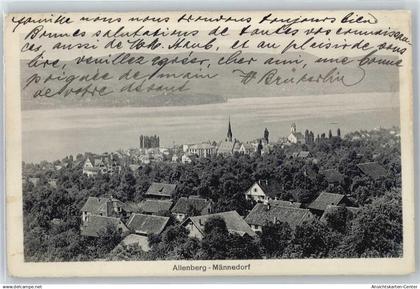 famille nous nous trouvons toujours bien
Bonnes salutations de toutes vos connaissan
ces, aussi de Mr Staub, et au plaisir de vous
lire, veuillez agréer, chère amie, une bonne
poignée de main
de votre
Allenberg - Männedorf
© www.Ansichtskarten-Center.de